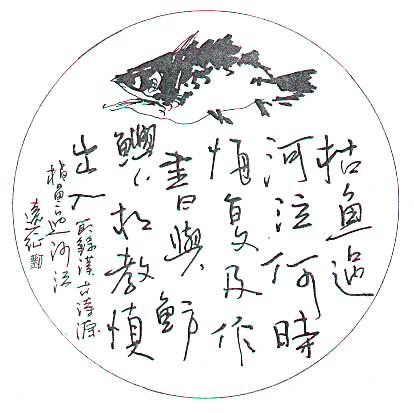 枯魚過
河泣何時
悔复及作
書與魴
鱮相教慎
出入 右錄漢古詩源
枯魚過河泣